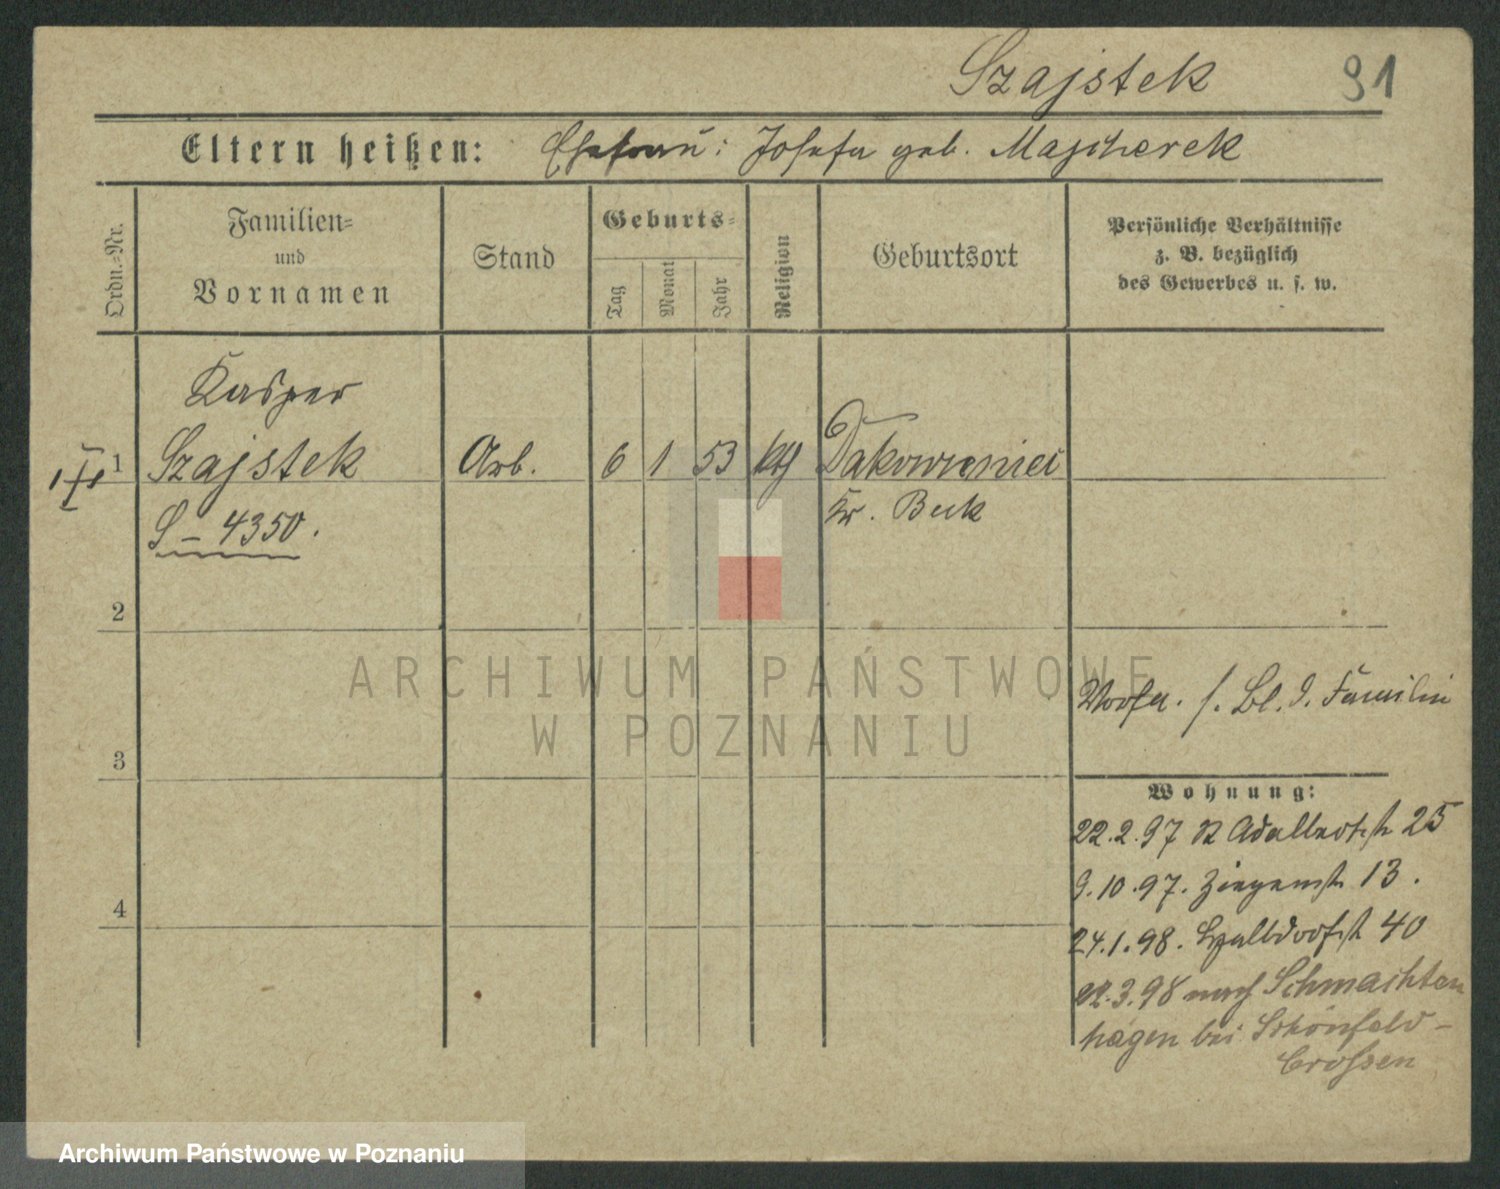 Szajstek 91
Eltern heißen: Ehefrau: Josefa geb. Majcherek
Ordn.-Nr.
Familien-
und
Vornamen
Stand
Geburts-
Tag
Monat
Jahr
Religion
Geburtsort
Persönliche Verhältnisse
z. B. bezüglich
des Gewerbes u. s. w.
Kasper
1 Szajstek Arb. 6 1 53 kth
S - 4350.
Kr. Buk
2
ARCHIWUM PAŃSTWOWE
W POZNANIU
s. Bl. d. Familie
3
Wohnung:
22.2.97 25
9.10.97. Ziegenstr 13.
4
24.1.98. 40
22.3.98 nach Schmachten
hagen bei Schönfeld-
Crossen
Archiwum Państwowe w Poznaniu